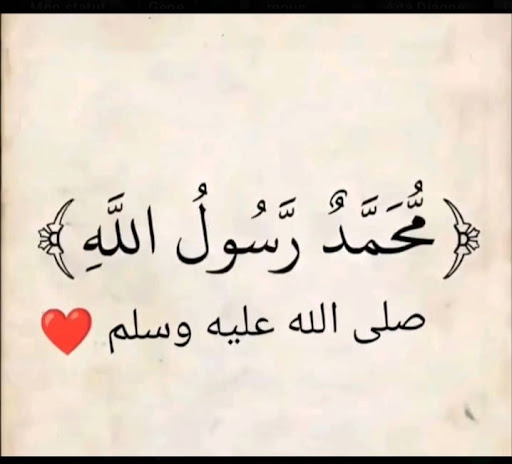 ﴿مُّحَمَّدٌ رَّسُولُ اللَّهِ﴾
صلى الله عليه وسلم ❤️